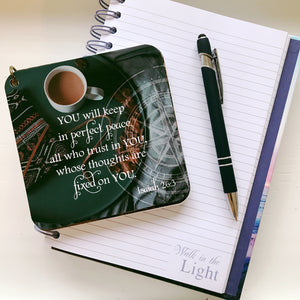 YOU will keep
in perfect peace
all who trust in YOU,
whose thoughts are
fixed on YOU.
Isaiah 26:3
Walk in the
Light